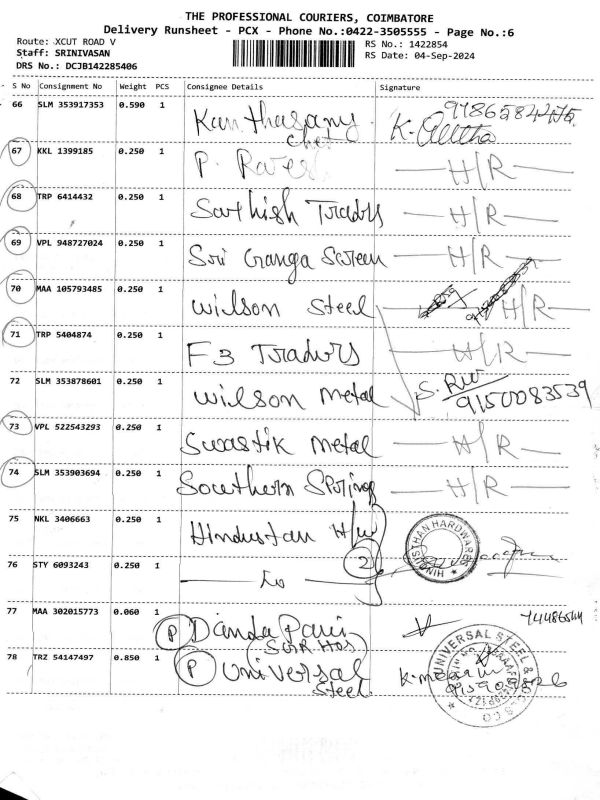 THE PROFESSIONAL COURIERS, COIMBATORE
Delivery Runsheet - PCX - Phone No.:0422-3505555 - Page No.:6
Route: XCUT ROAD V
Staff: SRINIVASAN
DRS No.: DCJB142285406
RS No.: 1422854
RS Date: 04-Sep-2024
S No Consignment No Weight PCS Consignee Details Signature
66 SLM 353917353 0.590 1 Kanthasamy K. 
67 KKL 1399185 0.250 1 P. H/R
68 TRP 6414432 0.250 1 Sathish Traders H/R
69 VPL 948727024 0.250 1 Sri Ganga Screen H/R
70 MAA 105793485 0.250 1 Wilson Steel H/R
71 TRP 5404874 0.250 1 F3 Traders H/R
72 SLM 353878601 0.250 1 Wilson Metal S. 9150083539
73 VPL 522543293 0.250 1 Swastik Metal H/R
74 SLM 353903694 0.250 1 Southern Springs H/R
75 NKL 3406663 0.250 1 Hindustan H/W HINDUSTHAN HARDWARES
76 STY 6093243 0.250 1 2
77 MAA 302015773 0.060 1 P
78 TRZ 54147497 0.850 1 P Universal Steel UNIVERSAL STEEL &